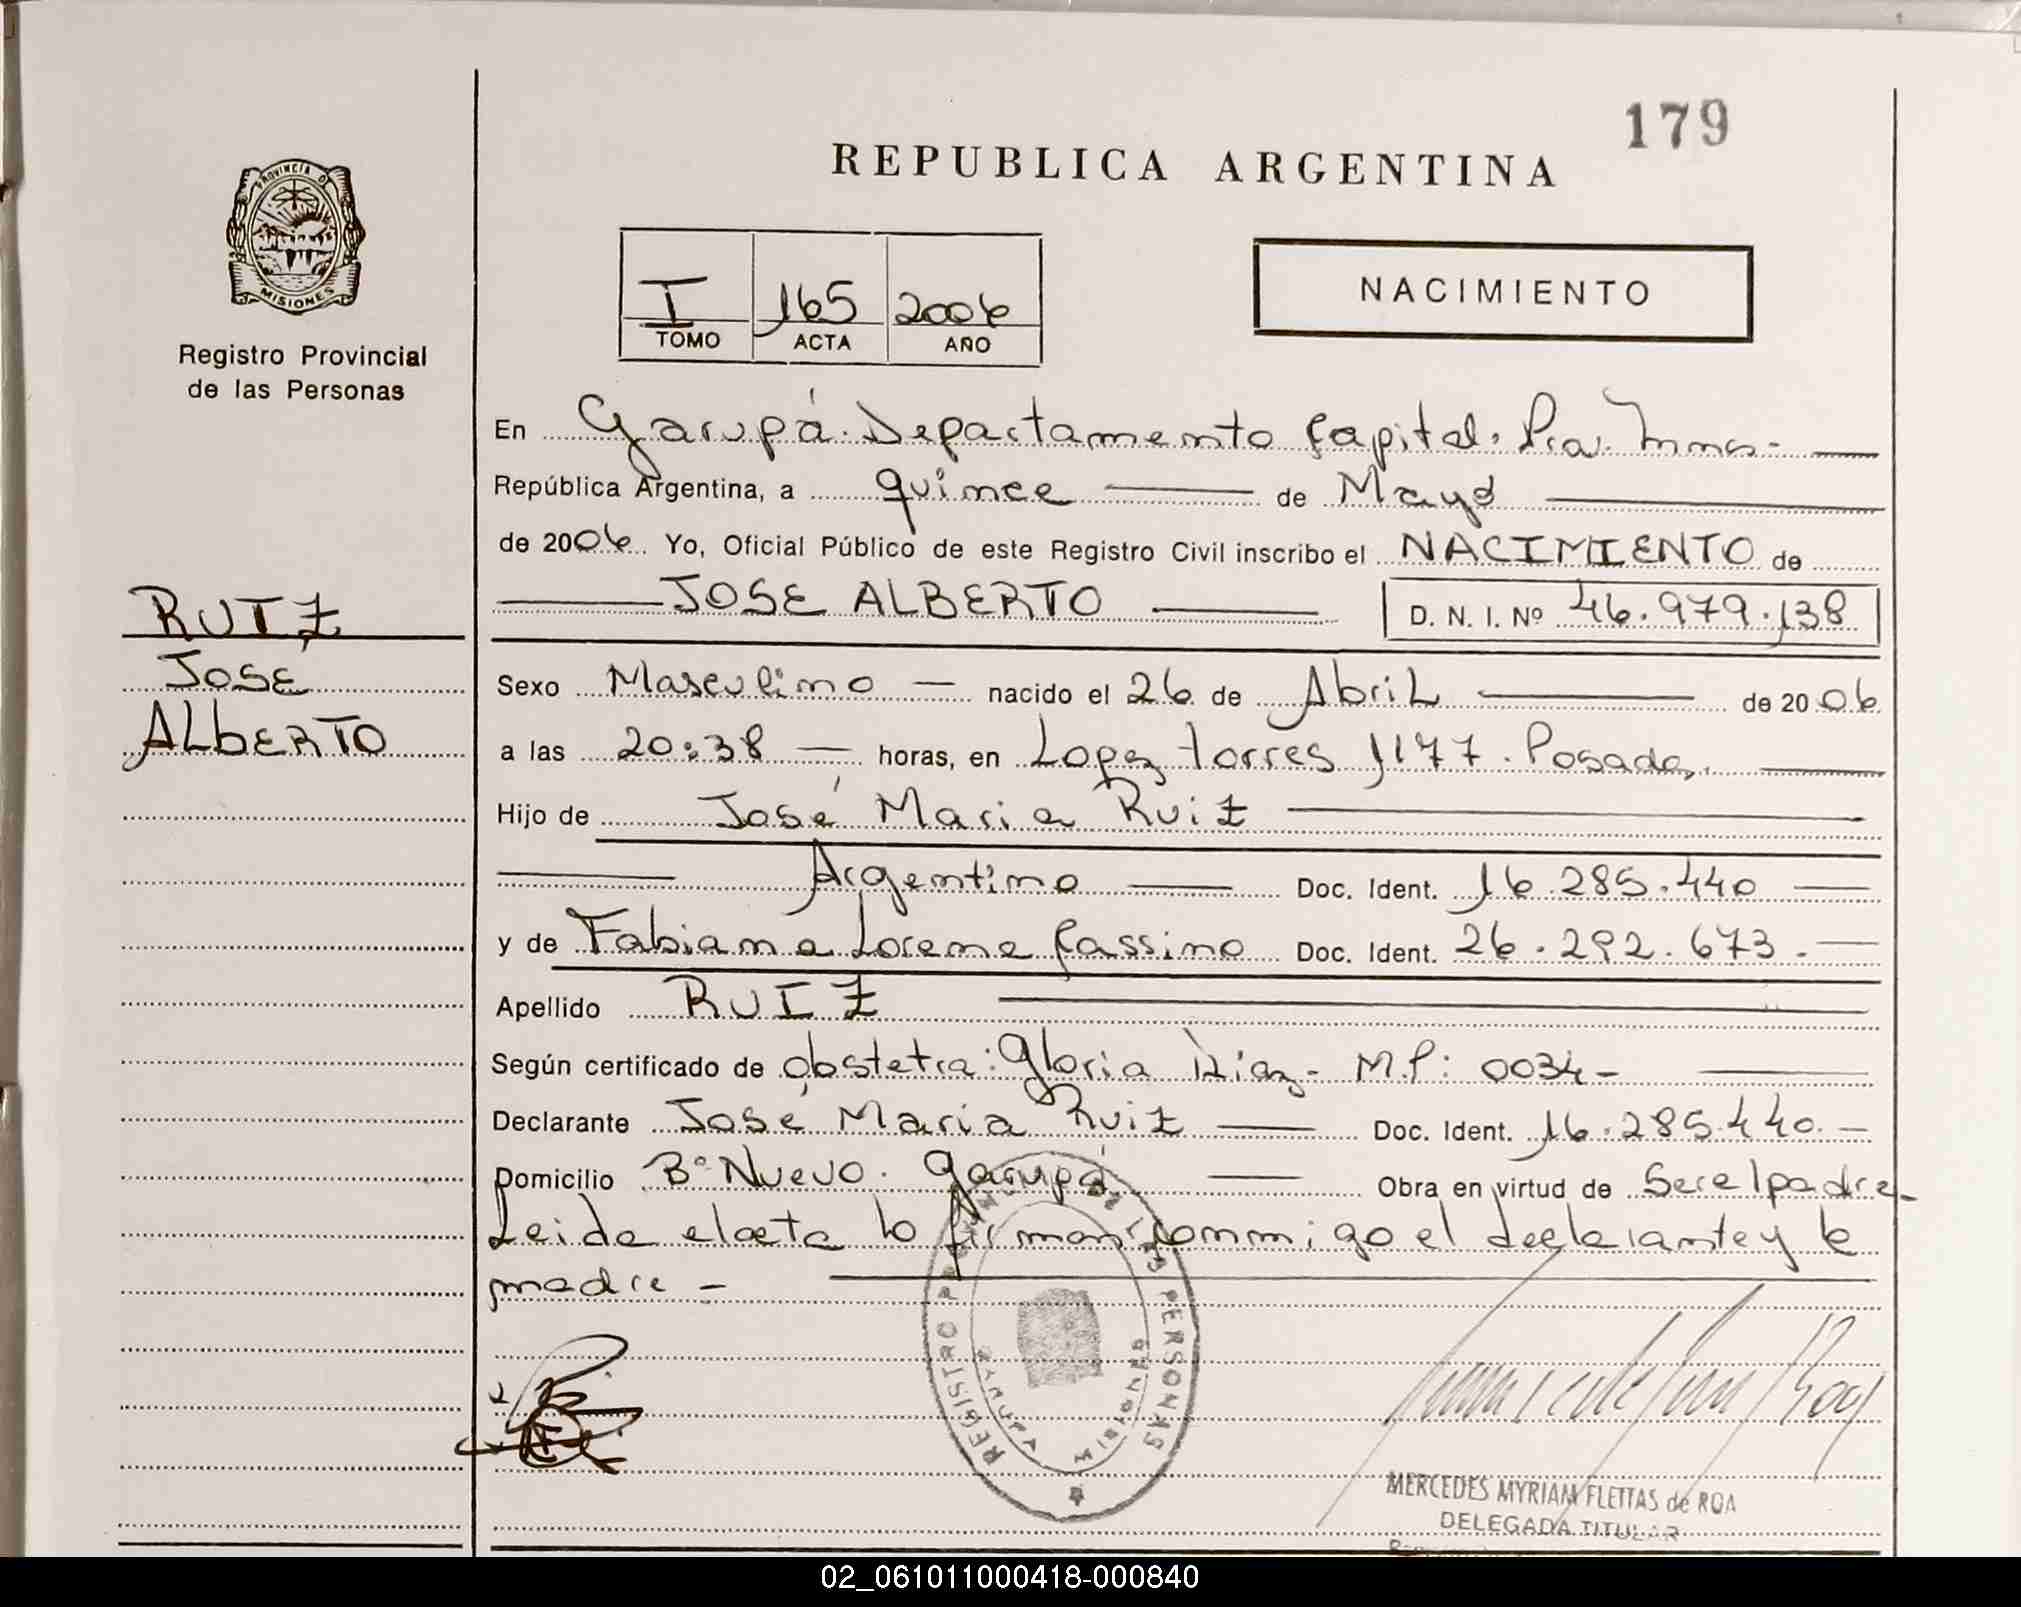 179
REPUBLICA ARGENTINA
PROVINCIA DE
MISIONES
Registro Provincial
de las Personas
I 165 2006
TOMO ACTA AÑO
NACIMIENTO
En Garupá. Departamento Capital. Pcia. Mnes-
República Argentina, a quince de Mayo
de 2006 Yo, Oficial Público de este Registro Civil inscribo el NACIMIENTO de
JOSE ALBERTO D. N. I. Nº 46.979.138
RUIZ
JOSE
ALBERTO
Sexo Masculino nacido el 26 de Abril de 2006
a las 20:38 horas, en Lopez torres 1177. Posadas.
Hijo de José Maria Ruiz
Argentino Doc. Ident. 16.285.440
y de Fabiana Lorena Cassino Doc. Ident. 26.292.673.
Apellido RUIZ
Según certificado de obstetra: Gloria Díaz- M.P: 0034-
Declarante José María Ruiz Doc. Ident. 16.285.440.-
Domicilio Bº Nuevo. Garupá Obra en virtud de Ser el padre-
Leida el acta la firman conmigo el declarante y la
madre -
REGISTRO DE LAS PERSONAS
GARUPA
MISIONES
MERCEDES MYRIAM FLEITAS de ROA
DELEGADA TITULAR
02_061011000418-000840